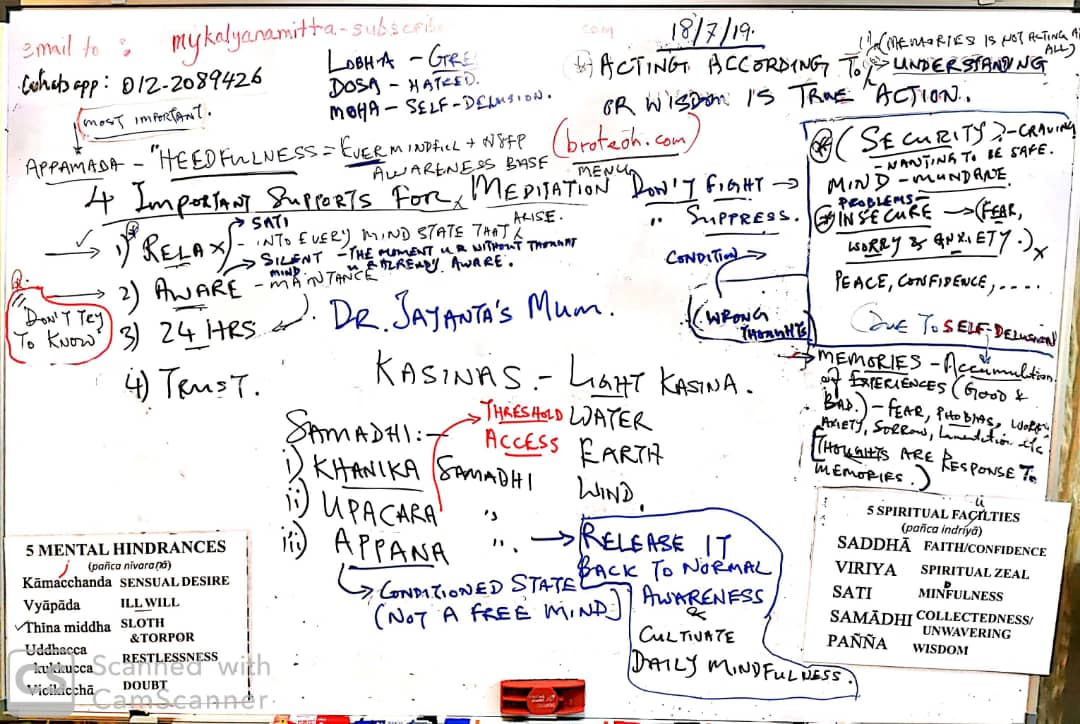 email to : mykalyanamitta-subscribe
com
Whats app: 012-2089426
18/7/19.
LOBHA - GREE
DOSA - HATRED.
MOHA - SELF-DELUSION.
(MEMORIES IS NOT ACTING AT ALL)
ACTING ACCORDING TO UNDERSTANDING
OR WISDOM IS TRUE ACTION.
(MOST IMPORTANT.
APPAMADA - "HEEDFULNESS = EVER MINDFUL +
AWARENESS BASE
(broteoh.com)
MENU
4 IMPORTANT SUPPORTS FOR MEDITATION
1) RELAX
SATI
- INTO EVERY MIND STATE THAT ARISE.
SILENT MIND. - THE MOMENT U R WITHOUT THOUGHT
U R ALREADY AWARE.
2) AWARE - MAINTANCE
3) 24 HRS
4) TRUST.
DON'T TRY
TO KNOW
DR. JAYANTA'S MUM.
DON'T FIGHT →
" SUPPRESS.
CONDITION →
(WRONG
THOUGHTS)
(SECURITY? - CRAVING
- WANTING TO BE SAFE.
MIND - MUNDANE
PROBLEMS -
INSECURE → (FEAR,
WORRY & ANXIETY.)x
PEACE, CONFIDENCE, ....
(DUE TO SELF-DELUSION
MEMORIES - Accumulation
of EXPERIENCES (GOOD &
BAD.) - FEAR, PHOBIAS, WORRY
ANXIETY, SORROW, Lamentation etc
[THOUGHTS ARE RESPONSE TO
MEMORIES.)
KASINAS. - LIGHT KASINA.
WATER
EARTH
WIND.
SAMADHI:-
THRESHOLD
ACCESS
i) KHANIKA SAMADHI
ii) UPACARA "
iii) APPANA ".
CONDITIONED STATE
(NOT A FREE MIND)
→ RELEASE IT
BACK TO NORMAL
AWARENESS
&
CULTIVATE
DAILY MINDFULNESS.
5 MENTAL HINDRANCES
(pañca nīvaraṇā)
Kāmacchanda SENSUAL DESIRE
Vyāpāda ILL WILL
Thīna middha SLOTH
&TORPOR
Uddhacca
kukkucca RESTLESSNESS
Vicikicchā DOUBT
5 SPIRITUAL FACILTIES
(pañca indriyā)
SADDHĀ FAITH/CONFIDENCE
VIRIYA SPIRITUAL ZEAL
SATI MINFULNESS
SAMĀDHI COLLECTEDNESS/
UNWAVERING
PAÑÑA WISDOM
CS Scanned with
CamScanner